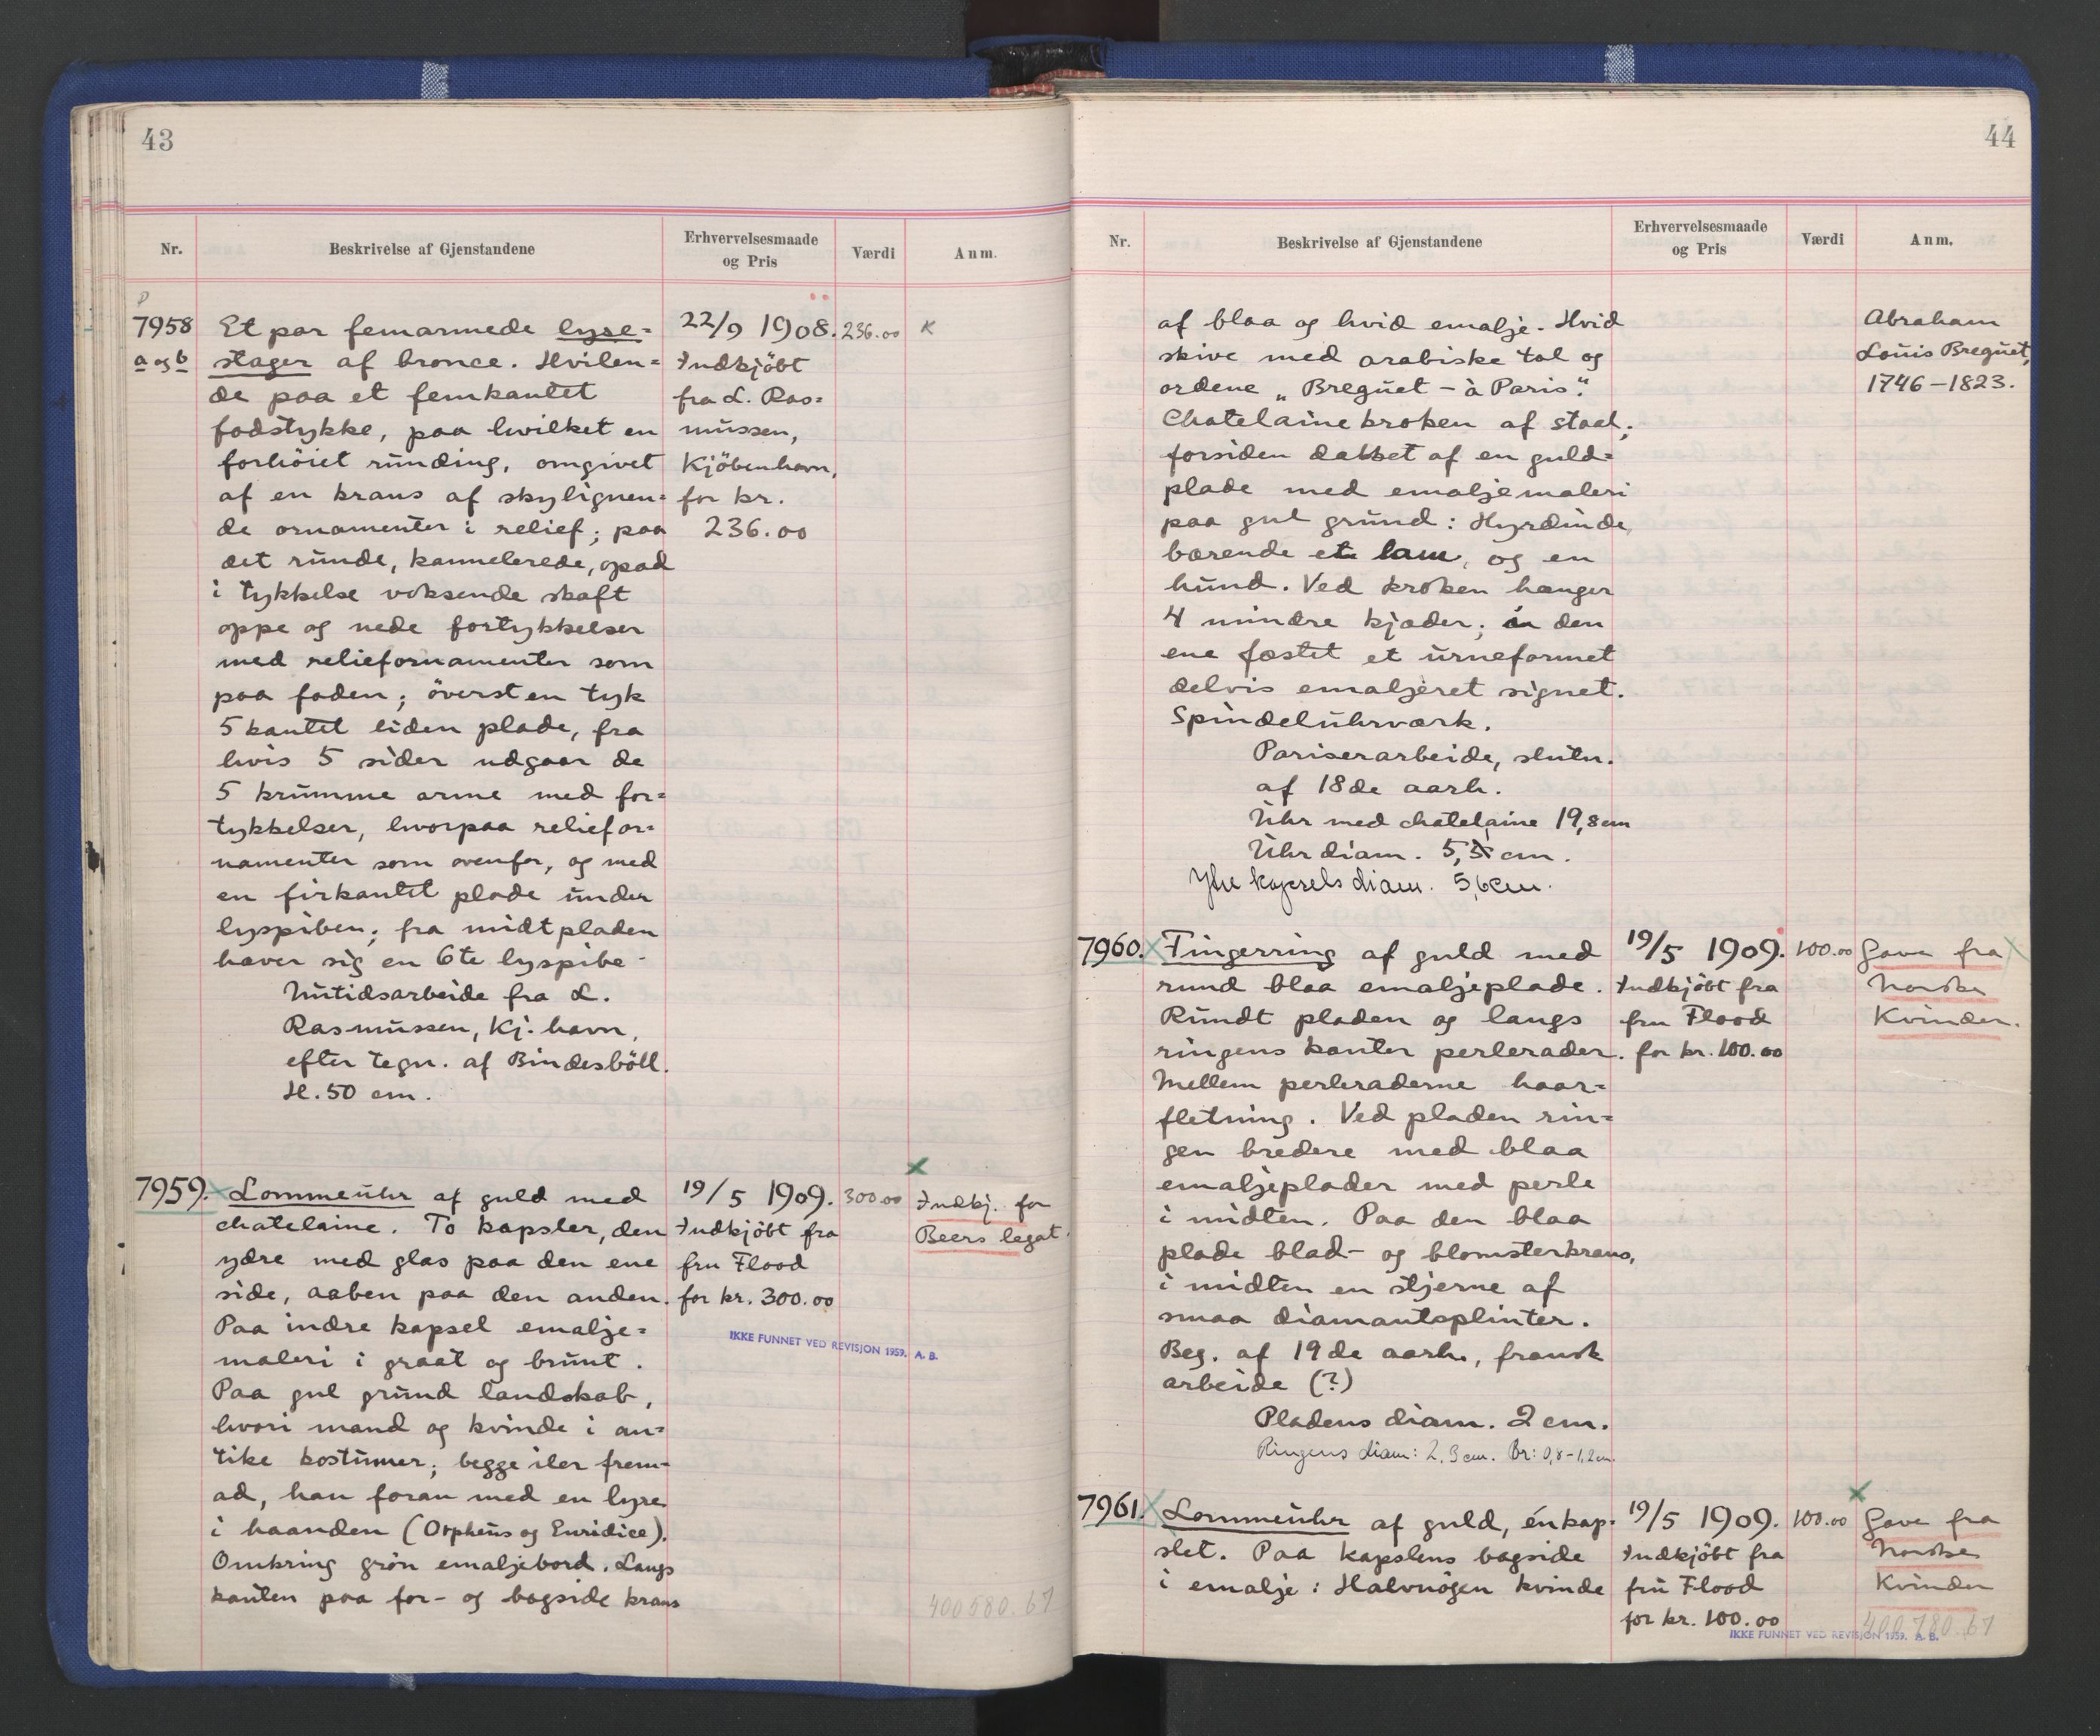 43
Nr.
Beskrivelse af Gjenstandene
Erhvervelsesmaade
og Pris
Værdi
Anm.
7958
a og b
Et par femarmede lyse=
stager af bronce. Hvilen=
de paa et femkantet
fodstykke, paa hvilket en
forhöiet runding, omgivet
af en krans af skylignen=
de ornamenter i relief; paa
det runde, kannelerede, opad
i tykkelse voksende skaft
oppe og nede fortykkelser
med reliefornamenter som
paa foden; överst en tyk
5 kantet liden plade, fra
hvis 5 sider udgaar de
5 krumme arme med for=
tykkelser, hvorpaa reliefor=
namenter som ovenfor, og med
en firkantet plade under
lyspiben; fra midtpladen
hæver sig en 6te lyspibe.
Nutidsarbeide fra L.
Rasmussen, Kj.havn,
efter tegn. af Bindesböll.
H. 50 cm.
22/9 1908.
Indkjöbt
fra L. Ras=
mussen,
Kjöbenhavn,
for kr.
236.00
236.00
K
7959.
Lommeuhr af guld med
chatelaine. To kapsler, den
ydre med glas paa den ene
side, aaben paa den anden.
Paa indre kapsel emalje=
maleri i graat og brunt.
Paa gul grund landskab,
hvori mand og kvinde i an=
tike kostumer; begge iler frem=
ad, han foran med en lyre
i haanden (Orpheus og Euridice).
Omkring grön emaljebord. Langs
kanten paa for- og bagside krans
19/5 1909.
Indkjöbt fra
fru Flood
for kr. 300.00
IKKE FUNNET VED REVISJON 1959. A. B.
300.00
Indkj. for
Beers legat.
400580.67
44
Nr.
Beskrivelse af Gjenstandene
Erhvervelsesmaade
og Pris
Værdi
Anm.
af blaa og hvid emalje. Hvid
skive med arabiske tal og
ordene „Breguet – à Paris".
Chatelainekroken af staal;
forsiden dækket af en guld=
plade med emaljemaleri
paa gul grund: Hyrdinde,
bærende et lam, og en
hund. Ved kroken hænger
4 mindre kjæder; i den
ene fæstet et urneformet
delvis emaljeret signet.
Spindeluhrværk.
Pariserarbeide, slutn.
af 18de aarh.
Uhr med chatelaine 19,8 cm
Uhr diam. 5,5 cm.
Ytre kapsels diam. 5,6 cm.
Abraham
Louis Breguet,
1746–1823.
7960.
Fingerring af guld med
rund blaa emaljeplade.
Rundt pladen og langs
ringens kanter perlerader.
Mellem perleraderne haar=
fletning. Ved pladen rin=
gen bredere med blaa
emaljeplader med perle
i midten. Paa den blaa
plade blad- og blomsterkrans,
i midten en stjerne af
smaa diamantsplinter.
Beg. af 19de aarh., fransk
arbeide (?)
Pladens diam. 2 cm.
Ringens diam: 2,3 cm. Br: 0,8–1,2 cm.
19/5 1909.
Indkjöbt fra
fru Flood
for kr. 100.00
100.00
Gave fra
Norske
Kvinder.
7961.
Lommeuhr af guld, énkap=
slet. Paa kapslens bagside
i emalje: Halvnögen kvinde
19/5 1909.
Indkjöbt fra
fru Flood
for kr. 100.00
100.00
Gave fra
Norske
Kvinder
400780.67
IKKE FUNNET VED REVISJON 1959. A. B.